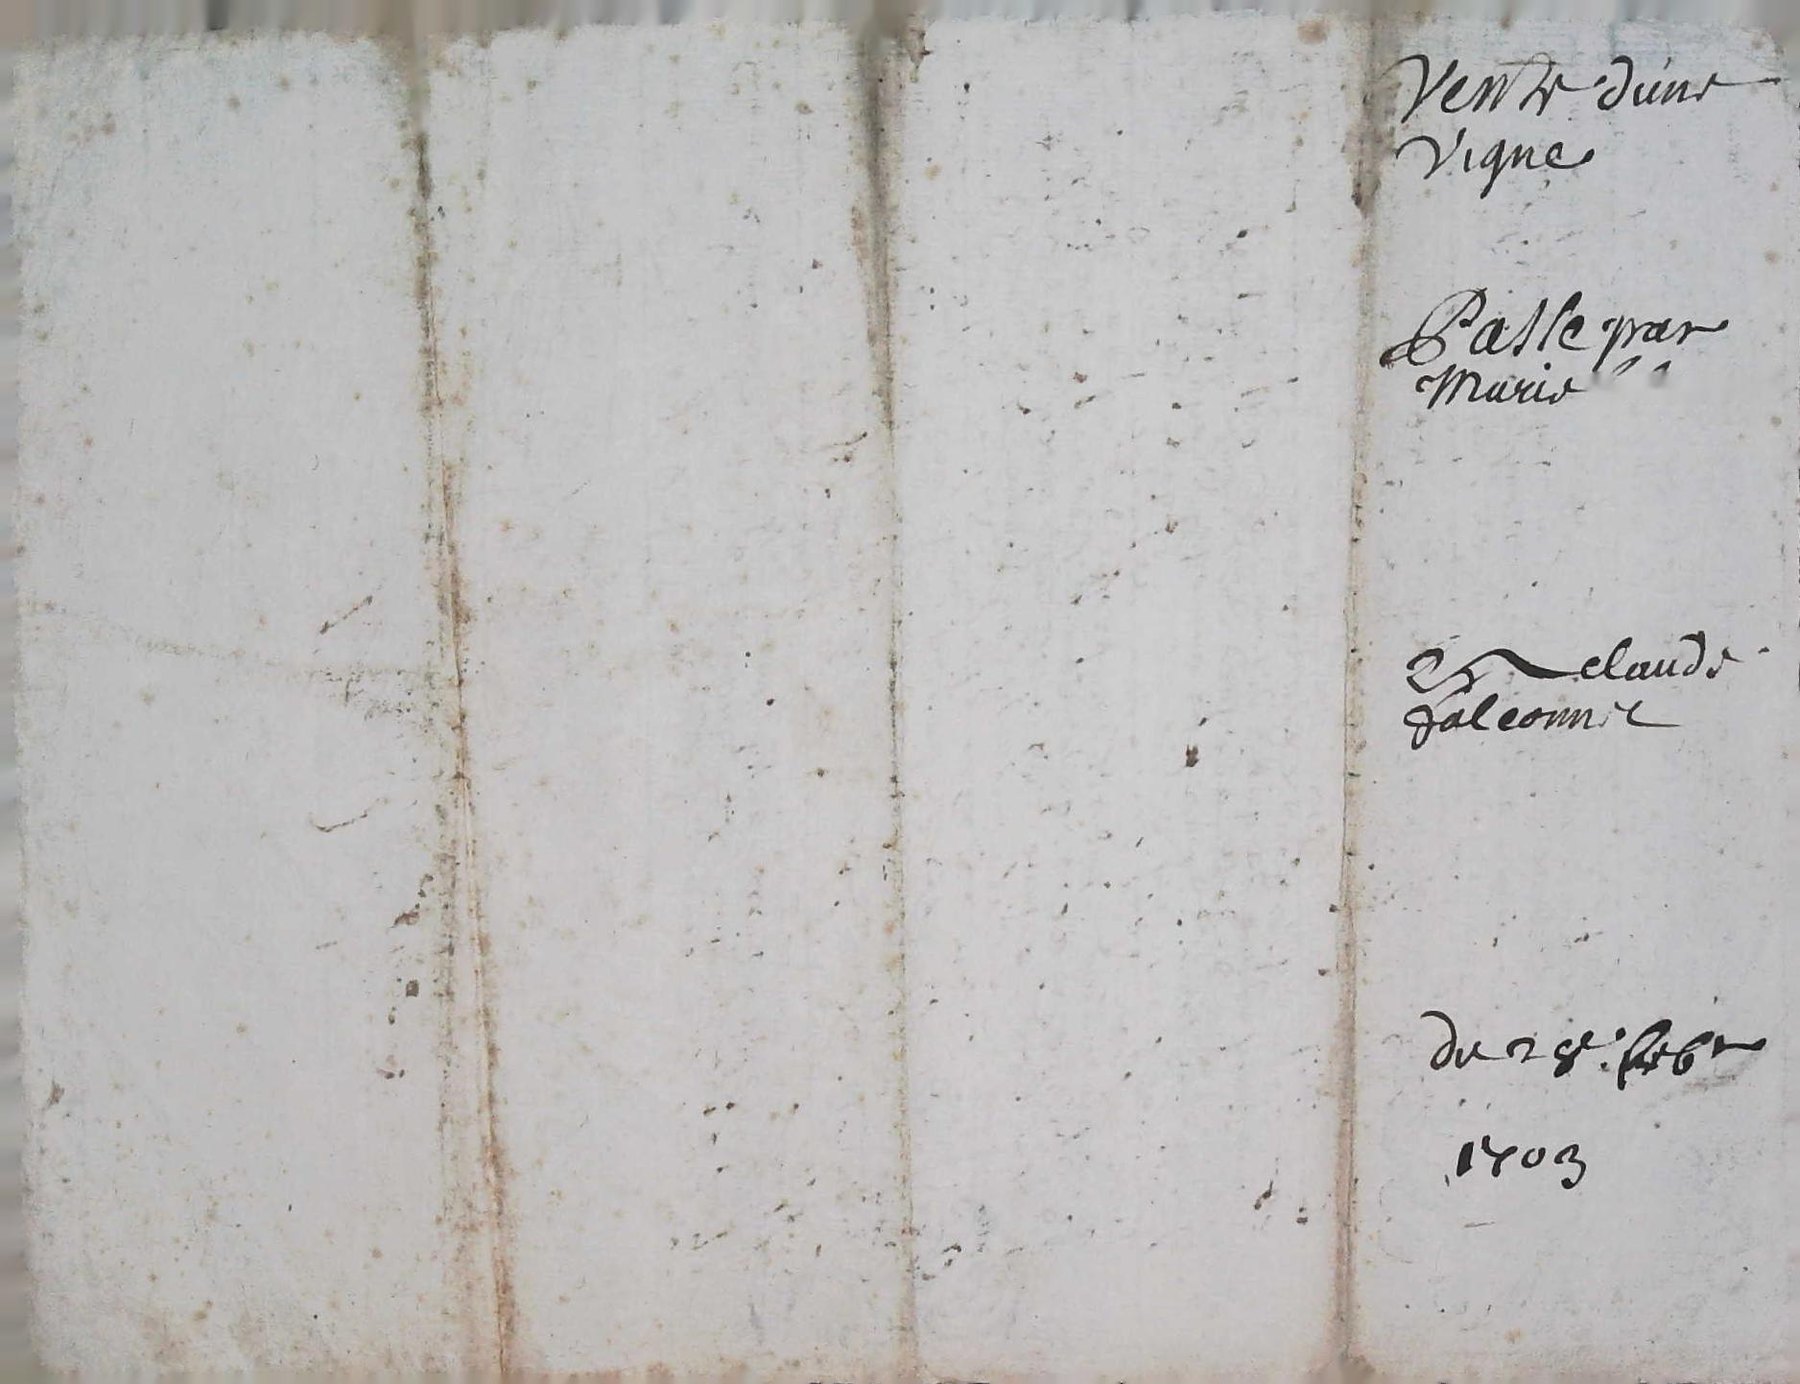 Vente dune
Vigne
Passe par
Marie
Et claude
falconnet
du 28e. feb
1703